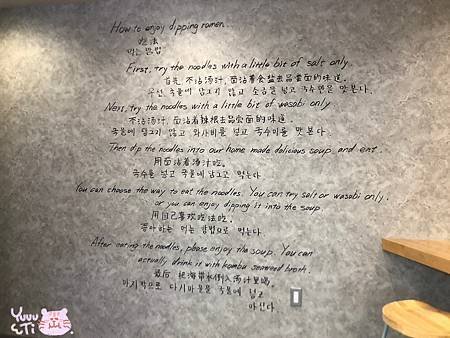 How to enjoy dipping ramen...
吃法
먹는 방법
First, try the noodles with a little bit of salt only.
首先, 不沾汤汁, 面沾着食盐去品尝面的味道.
우선, 국물에 담그지 않고 소금을 넣고 국수면을 맛본다.
Next, try the noodles with a little bit of wasabi only
不沾汤汁, 面沾着辣根去品尝面的味道.
국물에 담그지 않고 와사비를 넣고 국수의를 맛 본다.
Then dip the noodles into our home made delicious soup, and eat.
用面沾着汤汁吃.
국수를 넣고 국물에 담그고 먹는다
You can choose the way to eat the noodles. You can try salt or wasabi only.
or you can enjoy dipping it into the soup.
用自己喜欢吃法吃.
좋아하는 먹는 방법으로 먹는다.
After eating the noodles, please enjoy the soup. You can
actually drink it with kombu seaweed broth.
最后, 把海带水倒入汤汁里喝
마지막으로 다시마물을 국물에 넣고
마신다.
Yuuu
&Ti